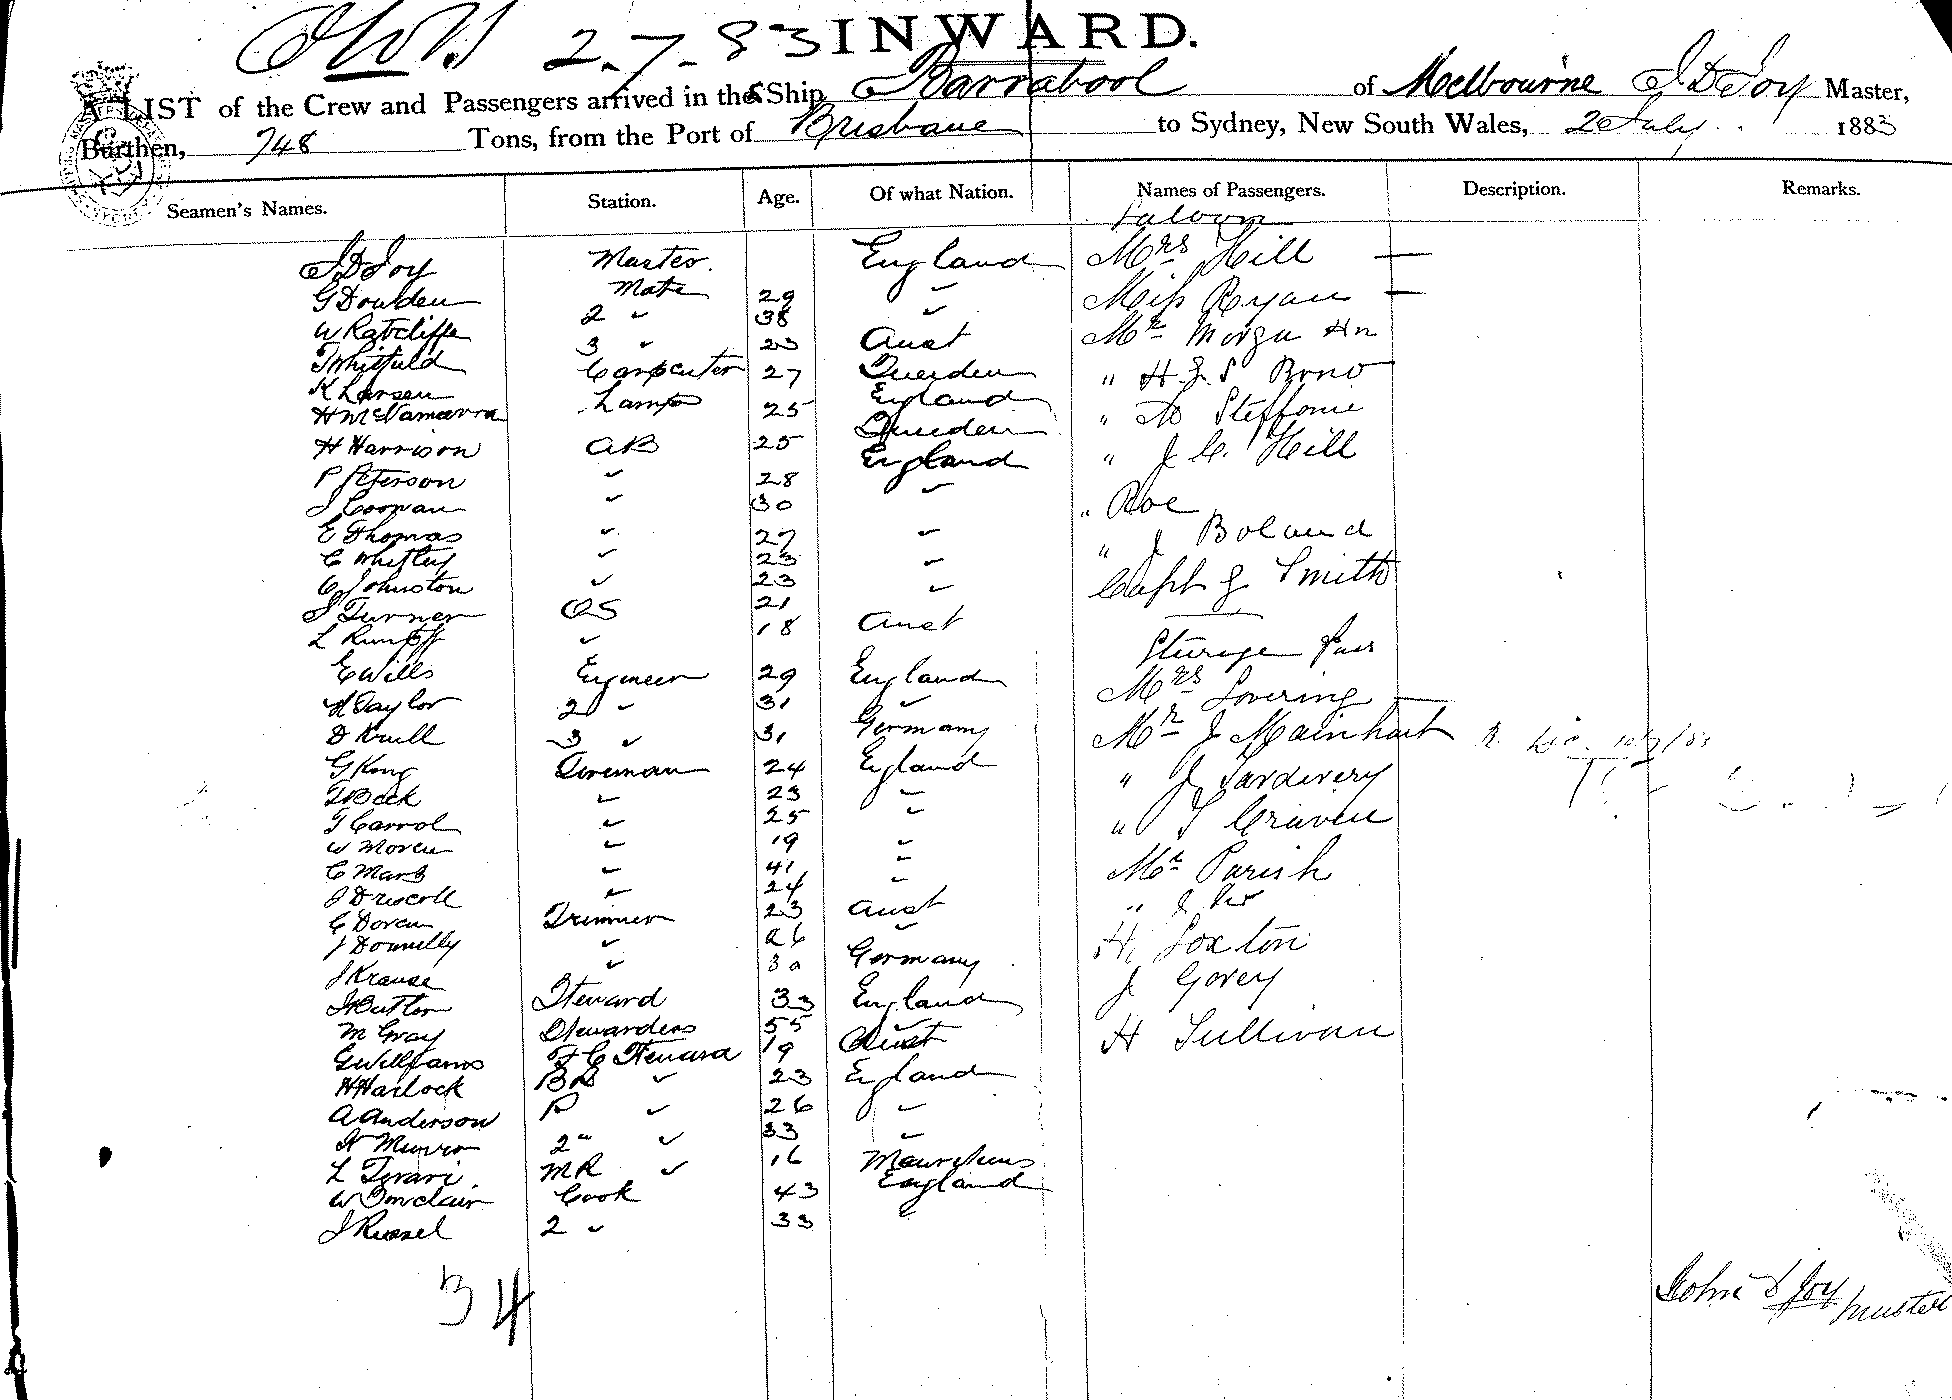 2-7-83 INWARD.
A LIST of the Crew and Passengers arrived in the SShip Barrabool of Melbourne J D Joy Master,
Burthen, 748 Tons, from the Port of Brisbane to Sydney, New South Wales, 2 July 1883
Seamen's Names. Station. Age. Of what Nation. Names of Passengers. Description. Remarks.
Saloon
J D Joy Master. England Mrs Hill —
G Dowden Mate 29 " Miss Ryan —
W Ratcliffe 2 " 38 " Mr Morgan
T Whitfield 3 " 23 Aust " H & S
K Larsen Carpenter 27 Sweeden " Steffonie
H McNamarra Lamps 25 England " J C. Hill
H Harrison AB 25 Sweeden " Roe
P Peterson " 28 England " J Boland
J Coonan " 30 " Capt J Smith
E Thomas " 27 " Steerage Pass
C Whitley " 23 " Mrs Lovering —
C Johnston " 23 " Mr J Mainhart
J Turner OS 21 " J Sardivery
L Rumpff " 18 Aust " T Craven
E Wills Engineer 29 England Mr Parish
H Taylor 2 " 31 " " J
D Krull 3 " 31 Germany H Loxton
G King Fireman 24 England J Govey
T Beck " 23 " H Sullivan
T Carrol " 25 "
W Moren " 19 "
C Mars " 41 "
J Driscoll " 24 "
C Doren Trimmer 23 Aust
J Donnelly " 26 "
J Krause " 30 Germany
H Butler Steward 33 England
M Gray Stewardess 55 "
G Williams F C Steward 19 Aust
H Harlock B R " 23 England
A Anderson P " 26 "
H Munro 2 " " 33 "
L Terari MR " 16 Mauritius
W Sinclair Cook 43 England
J Russel 2 " 33
34
John D Joy
Master